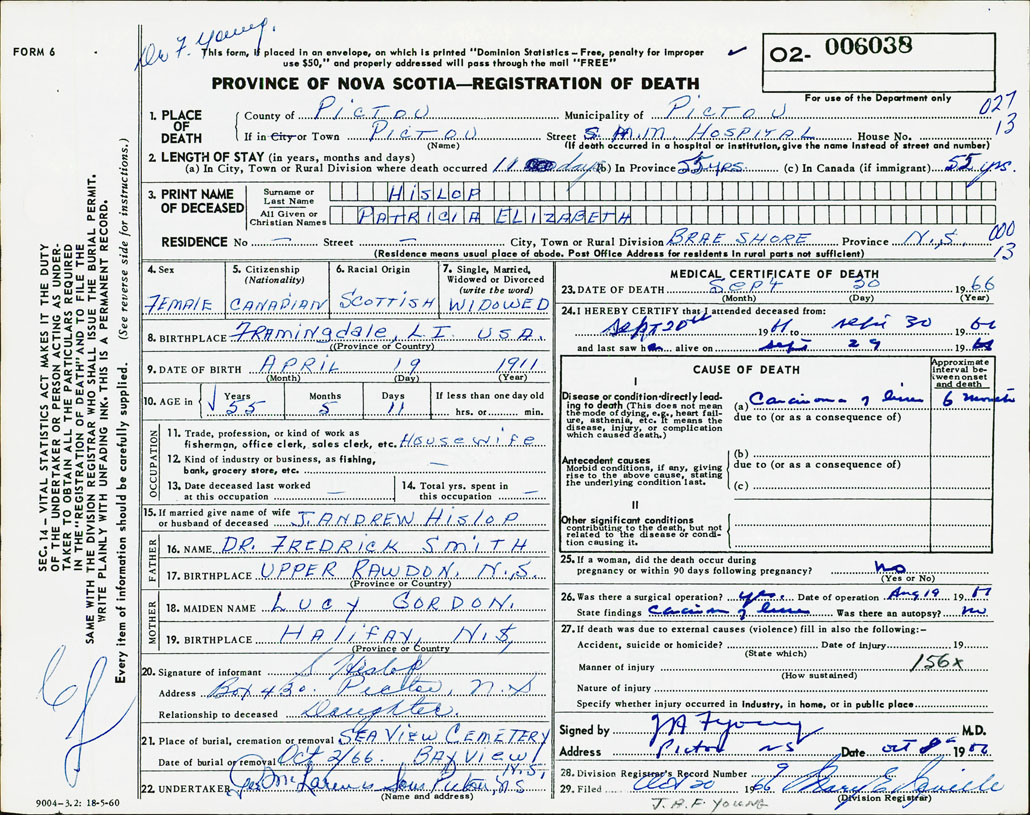 FORM 6
Dr F. Young.
This form, if placed in an envelope, on which is printed "Dominion Statistics – Free, penalty for improper
use $50," and properly addressed will pass through the mail "FREE"
O2- 006038
PROVINCE OF NOVA SCOTIA—REGISTRATION OF DEATH
For use of the Department only
027
13
1. PLACE OF DEATH
County of PICTOU Municipality of PICTOU
If in City or Town PICTOU Street S.M.M. HOSPITAL House No.
(Name) (If death occurred in a hospital or institution, give the name instead of street and number)
2. LENGTH OF STAY (in years, months and days)
(a) In City, Town or Rural Division where death occurred 11 days (b) In Province 55 yrs. (c) In Canada (if immigrant) 55 yrs.
3. PRINT NAME OF DECEASED
Surname or Last Name HISLOP
All Given or Christian Names PATRICIA ELIZABETH
RESIDENCE No — Street — City, Town or Rural Division BRAE SHORE Province N.S. 000
13
(Residence means usual place of abode. Post Office Address for residents in rural parts not sufficient)
SEC. 14 – VITAL STATISTICS ACT MAKES IT THE DUTY
OF THE UNDERTAKER OR PERSON ACTING AS UNDER-
TAKER TO OBTAIN ALL THE PARTICULARS REQUIRED
IN THE "REGISTRATION OF DEATH" AND TO FILE THE
SAME WITH THE DIVISION REGISTRAR WHO SHALL ISSUE THE BURIAL PERMIT.
WRITE PLAINLY WITH UNFADING INK. THIS IS A PERMANENT RECORD.
Every item of information should be carefully supplied. (See reverse side for instructions.)
4. Sex FEMALE
5. Citizenship (Nationality) CANADIAN
6. Racial Origin SCOTTISH
7. Single, Married, Widowed or Divorced (write the word) WIDOWED
8. BIRTHPLACE FRAMINGDALE, L.I. U.S.A.
(Province or Country)
9. DATE OF BIRTH APRIL 19 1911
(Month) (Day) (Year)
10. AGE in Years 55 Months 5 Days 11 If less than one day old
hrs. or min.
OCCUPATION
11. Trade, profession, or kind of work as
fisherman, office clerk, sales clerk, etc. HOUSEWIFE
12. Kind of industry or business, as fishing,
bank, grocery store, etc. —
13. Date deceased last worked
at this occupation —
14. Total yrs. spent in
this occupation —
15. If married give name of wife
or husband of deceased J. ANDREW HISLOP
FATHER
16. NAME DR. FREDRICK SMITH
17. BIRTHPLACE UPPER RAWDON, N.S.
(Province or Country)
MOTHER
18. MAIDEN NAME LUCY GORDON.
19. BIRTHPLACE HALIFAX, N.S.
(Province or Country)
20. Signature of informant S Hislop
Address Box 430. Pictou, N.S
Relationship to deceased Daughter.
21. Place of burial, cremation or removal SEAVIEW CEMETERY
Date of burial or removal Oct 2/66 BAYVIEW N.S.
22. UNDERTAKER Sons Pictou, N.S
(Name and address)
9004–3.2: 18-5-60
MEDICAL CERTIFICATE OF DEATH
23. DATE OF DEATH Sept 30 1966
(Month) (Day) (Year)
24. I HEREBY CERTIFY that I attended deceased from:
Sept 20th 1966 to Sept 30 1966
and last saw her alive on Sept 29 1966
CAUSE OF DEATH
Approximate interval between onset and death
I
Disease or condition directly leading to death (This does not mean
the mode of dying, e.g., heart failure, asthenia, etc. It means the
disease, injury, or complication which caused death.)
(a) Carcinoma of liver 6 months
due to (or as a consequence of)
Antecedent causes
Morbid conditions, if any, giving
rise to the above cause, stating
the underlying condition last.
(b)
due to (or as a consequence of)
(c)
II
Other significant conditions
contributing to the death, but not
related to the disease or condition causing it.
25. If a woman, did the death occur during
pregnancy or within 90 days following pregnancy? no
(Yes or No)
26. Was there a surgical operation? yes. Date of operation Aug 19 1966
State findings Carcinoma of liver Was there an autopsy? no
27. If death was due to external causes (violence) fill in also the following:–
Accident, suicide or homicide? Date of injury 19
(State which)
Manner of injury 156x
(How sustained)
Nature of injury
Specify whether injury occurred in industry, in home, or in public place
Signed by JAF Young M.D.
Address Pictou NS Date Oct 1966
28. Division Registrar's Record Number 9
29. Filed Oct 20 1966 Mary E.
(Division Registrar)
J.A.F. YOUNG